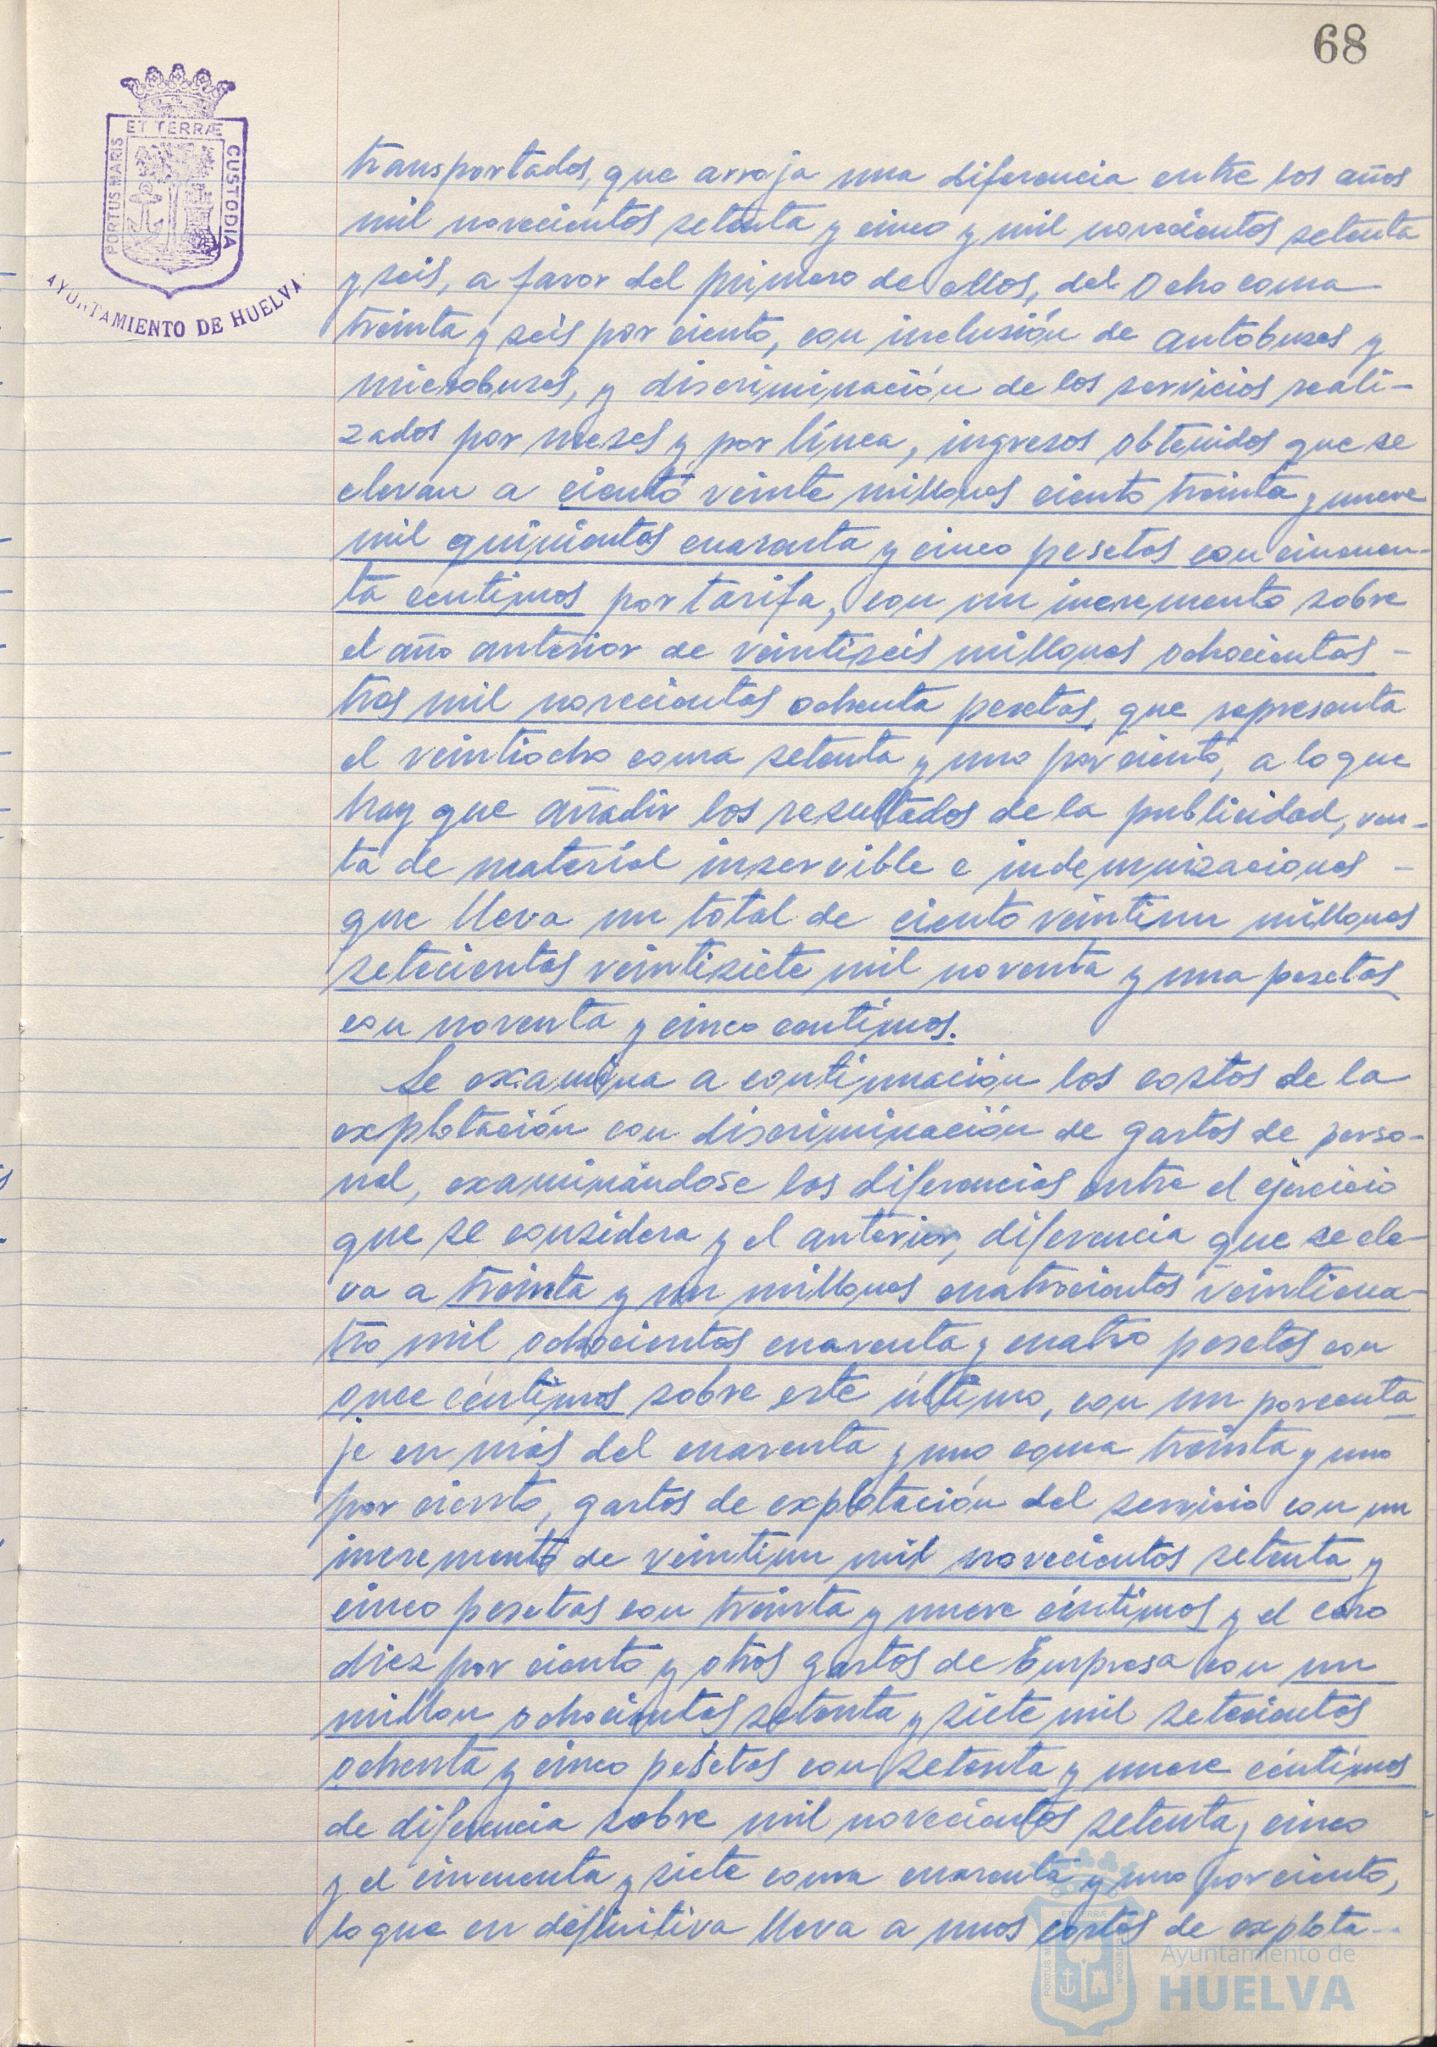 68
ET TERRÆ
PORTUS MARIS
CUSTODIA
AYUNTAMIENTO DE HUELVA
transportados, que arroja una diferencia entre los años
mil novecientos setenta y cinco y mil novecientos setenta
y seis, a favor del primero de ellos, del Ocho coma
treinta y seis por ciento, con inclusión de autobuses y
microbuses, y discriminación de los servicios reali-
zados por meses y por línea, ingresos obtenidos que se
elevan a ciento veinte millones ciento treinta y nueve
mil quinientos cuarenta y cinco pesetas con cincuen-
ta centimos por tarifa, con un incremento sobre
el año anterior de veintiseis millones ochocientas -
tres mil novecientas ochenta pesetas, que representa
el veintiocho coma setenta y uno por ciento, a lo que
hay que añadir los resultados de la publicidad, ven-
ta de material inservible e indemnizaciones -
que lleva un total de ciento veintiun millones
setecientas veintisiete mil noventa y una pesetas
con noventa y cinco centimos.
Se examina a continuación los costos de la
explotación con discriminación de gastos de perso-
nal, examinándose las diferencias entre el ejercicio
que se considera y el anterior, diferencia que se ele-
va a treinta y un millones cuatrocientos veinticua-
tro mil ochocientas cuarenta y cuatro pesetas con
once céntimos sobre este último, con un porcenta-
je en más del cuarenta y uno coma treinta y uno
por ciento, gastos de explotación del servicio con un
incremento de veintiun mil novecientos setenta y
cinco pesetas con treinta y nueve céntimos y el cero
diez por ciento y otros gastos de Empresa con un
millon ochocientas setenta y siete mil setecientos
ochenta y cinco pesetas con setenta y nueve céntimos
de diferencia sobre mil novecientos setenta y cinco
y el cincuenta y siete coma cuarenta y uno por ciento,
lo que en definitiva lleva a unos costos de explota--
Ayuntamiento de
HUELVA